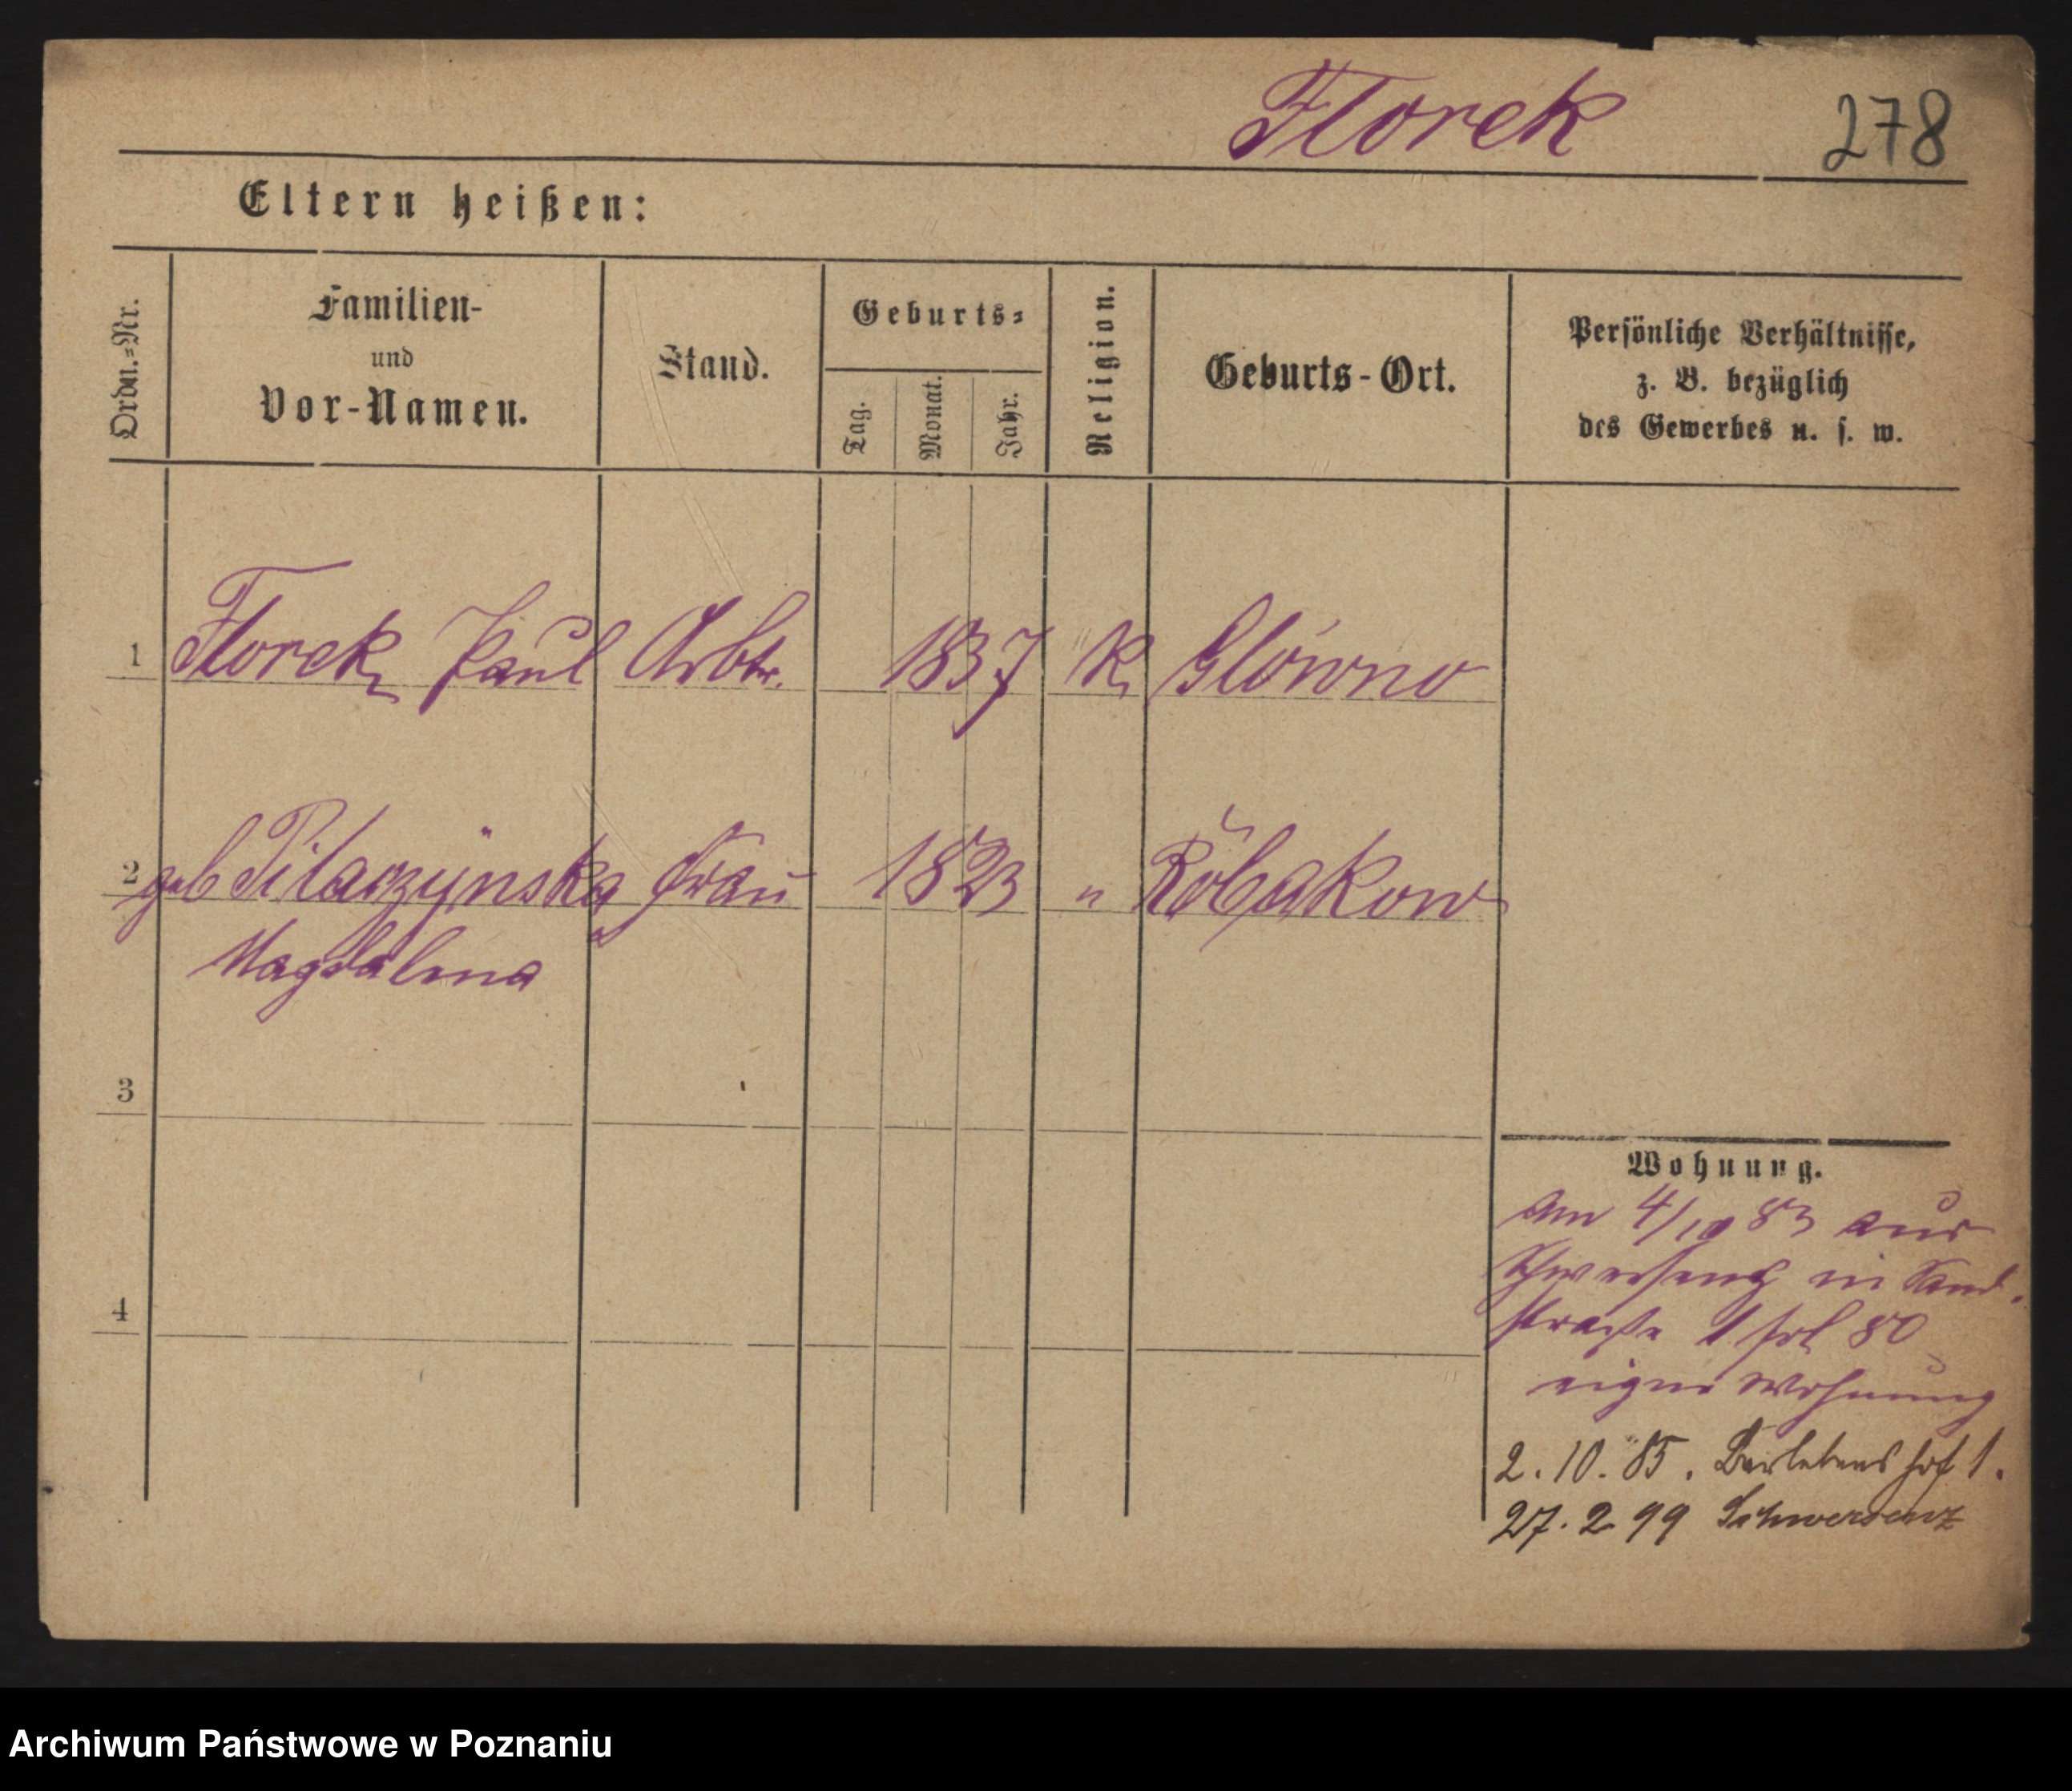 Florek 278
Eltern heißen:
Ordn.=Nr.
Familien-
und
Vor-Namen.
Stand.
Geburts=
Tag.
Monat.
Jahr.
Religion.
Geburts-Ort.
Persönliche Verhältnisse,
z. B. bezüglich
des Gewerbes u. s. w.
1 Florek Paul Arbtr. 1837 K. Glówno
2 geb Pilarzynska Frau 1823 " Robakow
Magdalena
3
4
Wohnung.
Am 4/10 83 aus
Schwersenz in Sand.
straße 1 80
eigene Wohnung
2. 10. 85. Berlebens hof 1.
27. 2 99 Schwersenz
Archiwum Państwowe w Poznaniu